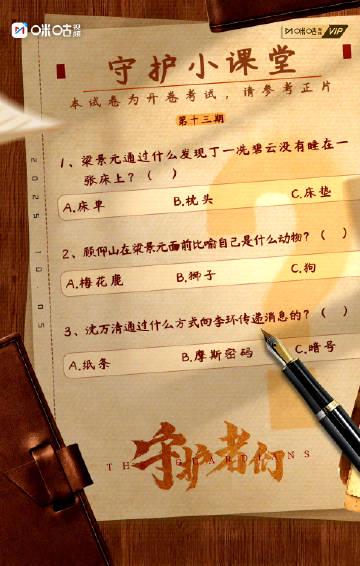 咪咕视频
咪咕视频 VIP
守护小课堂
本试卷为开卷考试，请参考正片
第十三期
2025 10.05
1、梁景元通过什么发现丁一冼碧云没有睡在一
张床上？（ ）
A.床单 B.枕头 C.床垫
2、顾仰山在梁景元面前比喻自己是什么动物？（ ）
A.梅花鹿 B.狮子 C.狗
3、沈万清通过什么方式向李环传递消息的？（ ）
A.纸条 B.摩斯密码 C.暗号
守护者们
THE GUARDIANS